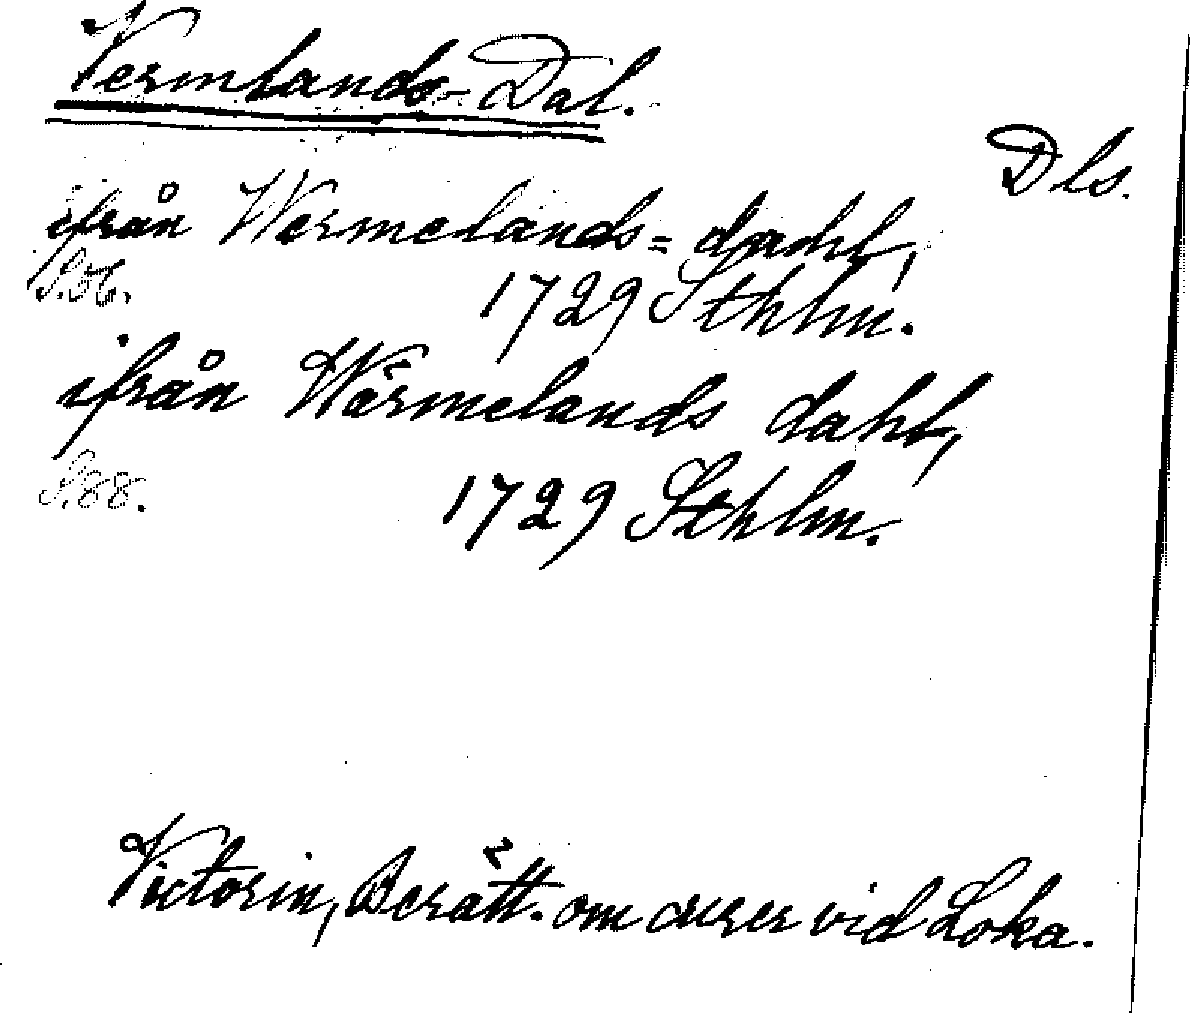 Vermlands-Dal.
Dls.
ifrån Wermelands=dahl,
1729 Sthlm.
ifrån Wärmelands dahl,
S. 88.
1729 Sthlm.
Victorin, Berätt. om curer vid Loka.